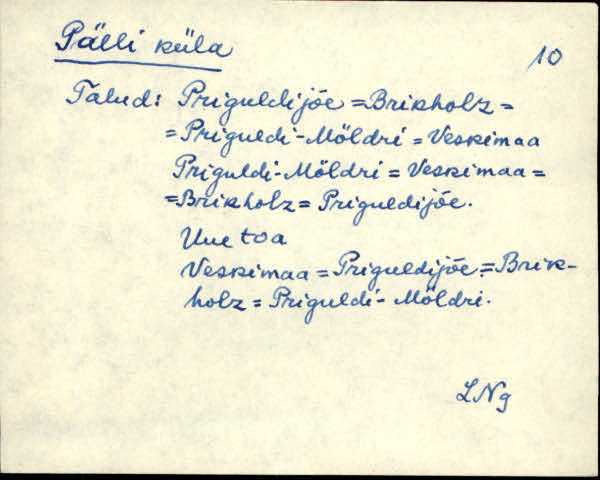 Pälli küla
10
Talud: Priguldijõe = Brikholz =
= Priguldi-Möldri = Veskimaa
Priguldi-Möldri = Veskimaa =
= Brikholz = Priguldijõe.
Uuetoa
Veskimaa = Priguldijõe = Brik-
holz = Priguldi-Möldri.
LNg